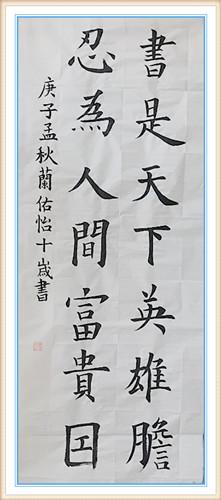 書是天下英雄膽
忍為人間富貴因
庚子孟秋蘭佑怡十歲書